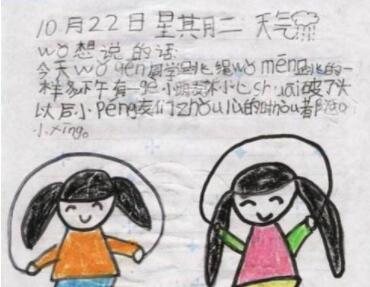 10月22日星其月二 天气
wǒ想说的话
今天wǒ gēn同学跳绳wǒ mēn跳的一
样多下午有一个小朋友不小心shuāi破了头
以后小péng友们zhǒu路的时hou者
小xīng。